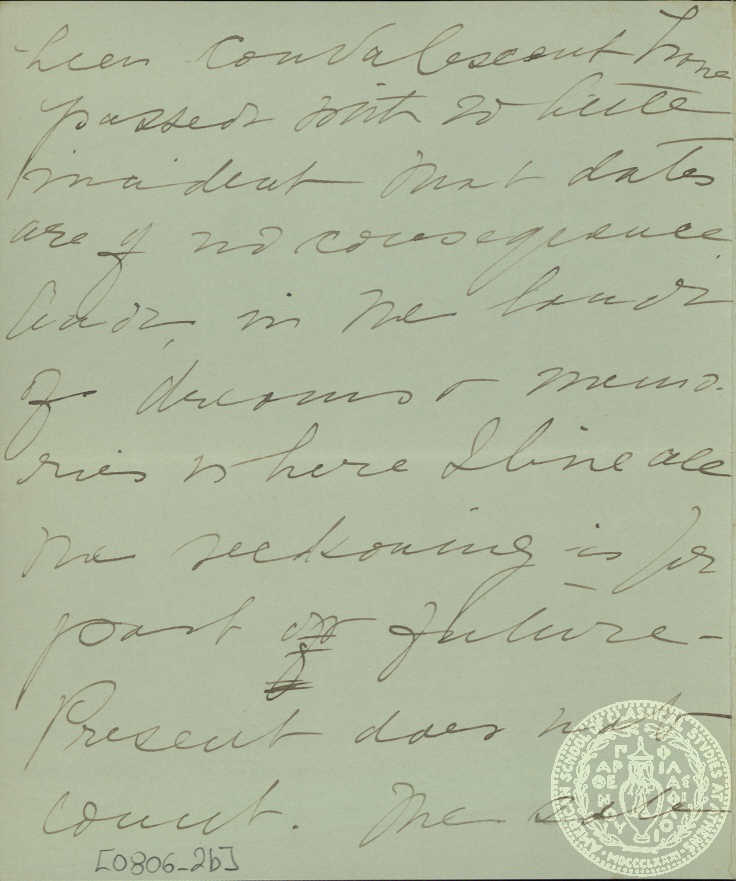 been convalescent. Time
passed with so little
incident that dates
are of no consequence.
And, in the land
of dreams & memo-
ries where I live all
the reckoning is for
past or future -
Present does not
count. The sole
[0806-2b]
ΠΑΡ ΦΙΛ
ΑΘΕ ΑΣ
MDCCCLXXXI